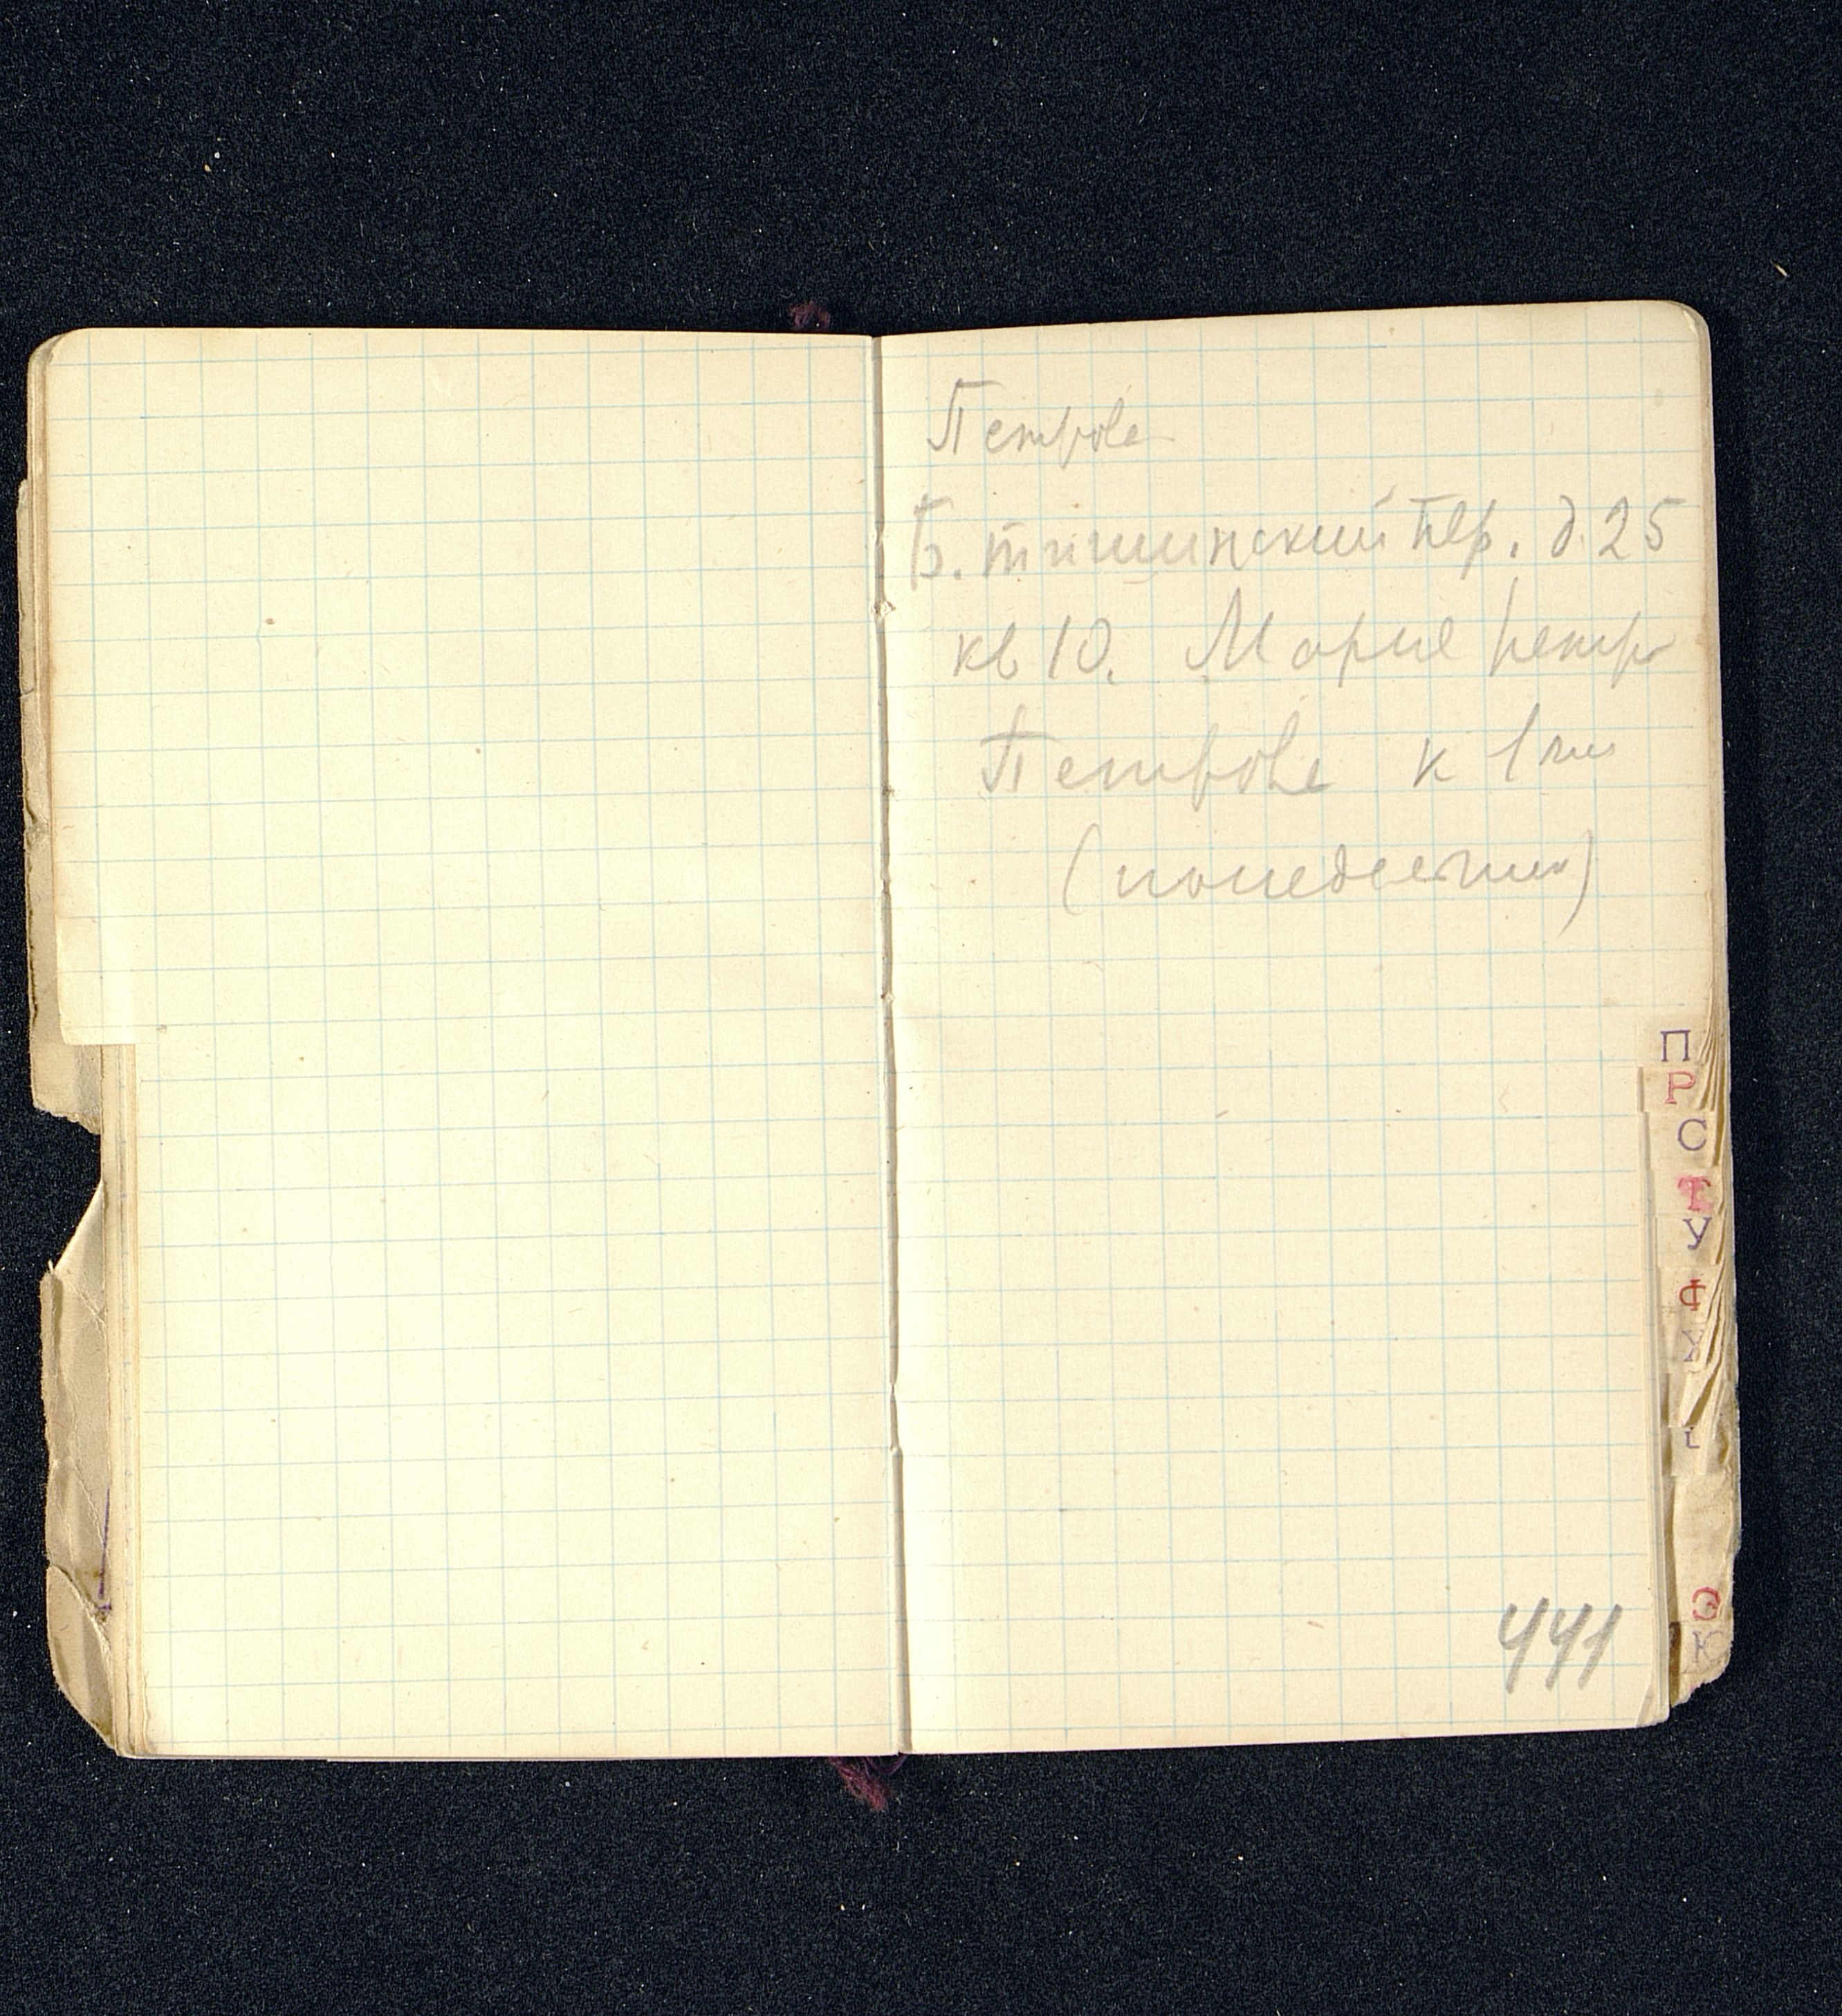 Петрова
Б. Тишинский пер. д. 25
кв 10. Мария Петр
Петрова к 1
П
Р
С
Т
У
Ф
Х
Э
441